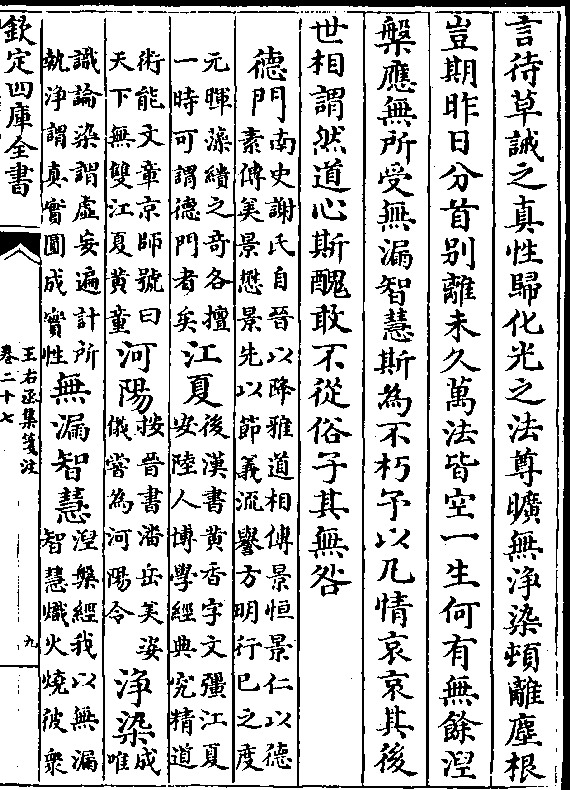 言待草誠之真性歸化光之法尊曠無浄染頓離塵根
豈期昨日分首别離未久萬法皆空一生何有無餘涅
槃應無所受無漏智慧斯為不朽予以凡情哀哀其後
世相謂然道心斯醜敢不從俗予其無咎
德門南史謝氏自晉以降雅道相傳景恒景仁以德
素傳美景懋景先以節義流譽方明行已之度
元暉藻繢之竒各擅
一時可謂德門者矣江夏後漢書黄香字文彊江夏
安陸人博學經典究精道
術能文章京師號曰
天下無雙江夏黄童河陽按晉書潘岳美姿
儀嘗為河陽令浄染成
唯
識論染謂虚妄遍計所
執浄謂真實圓成實性無漏智慧涅槃經我以無漏
智慧熾火燒彼衆
欽定四庫全書
王右丞集箋注
卷二十七
九